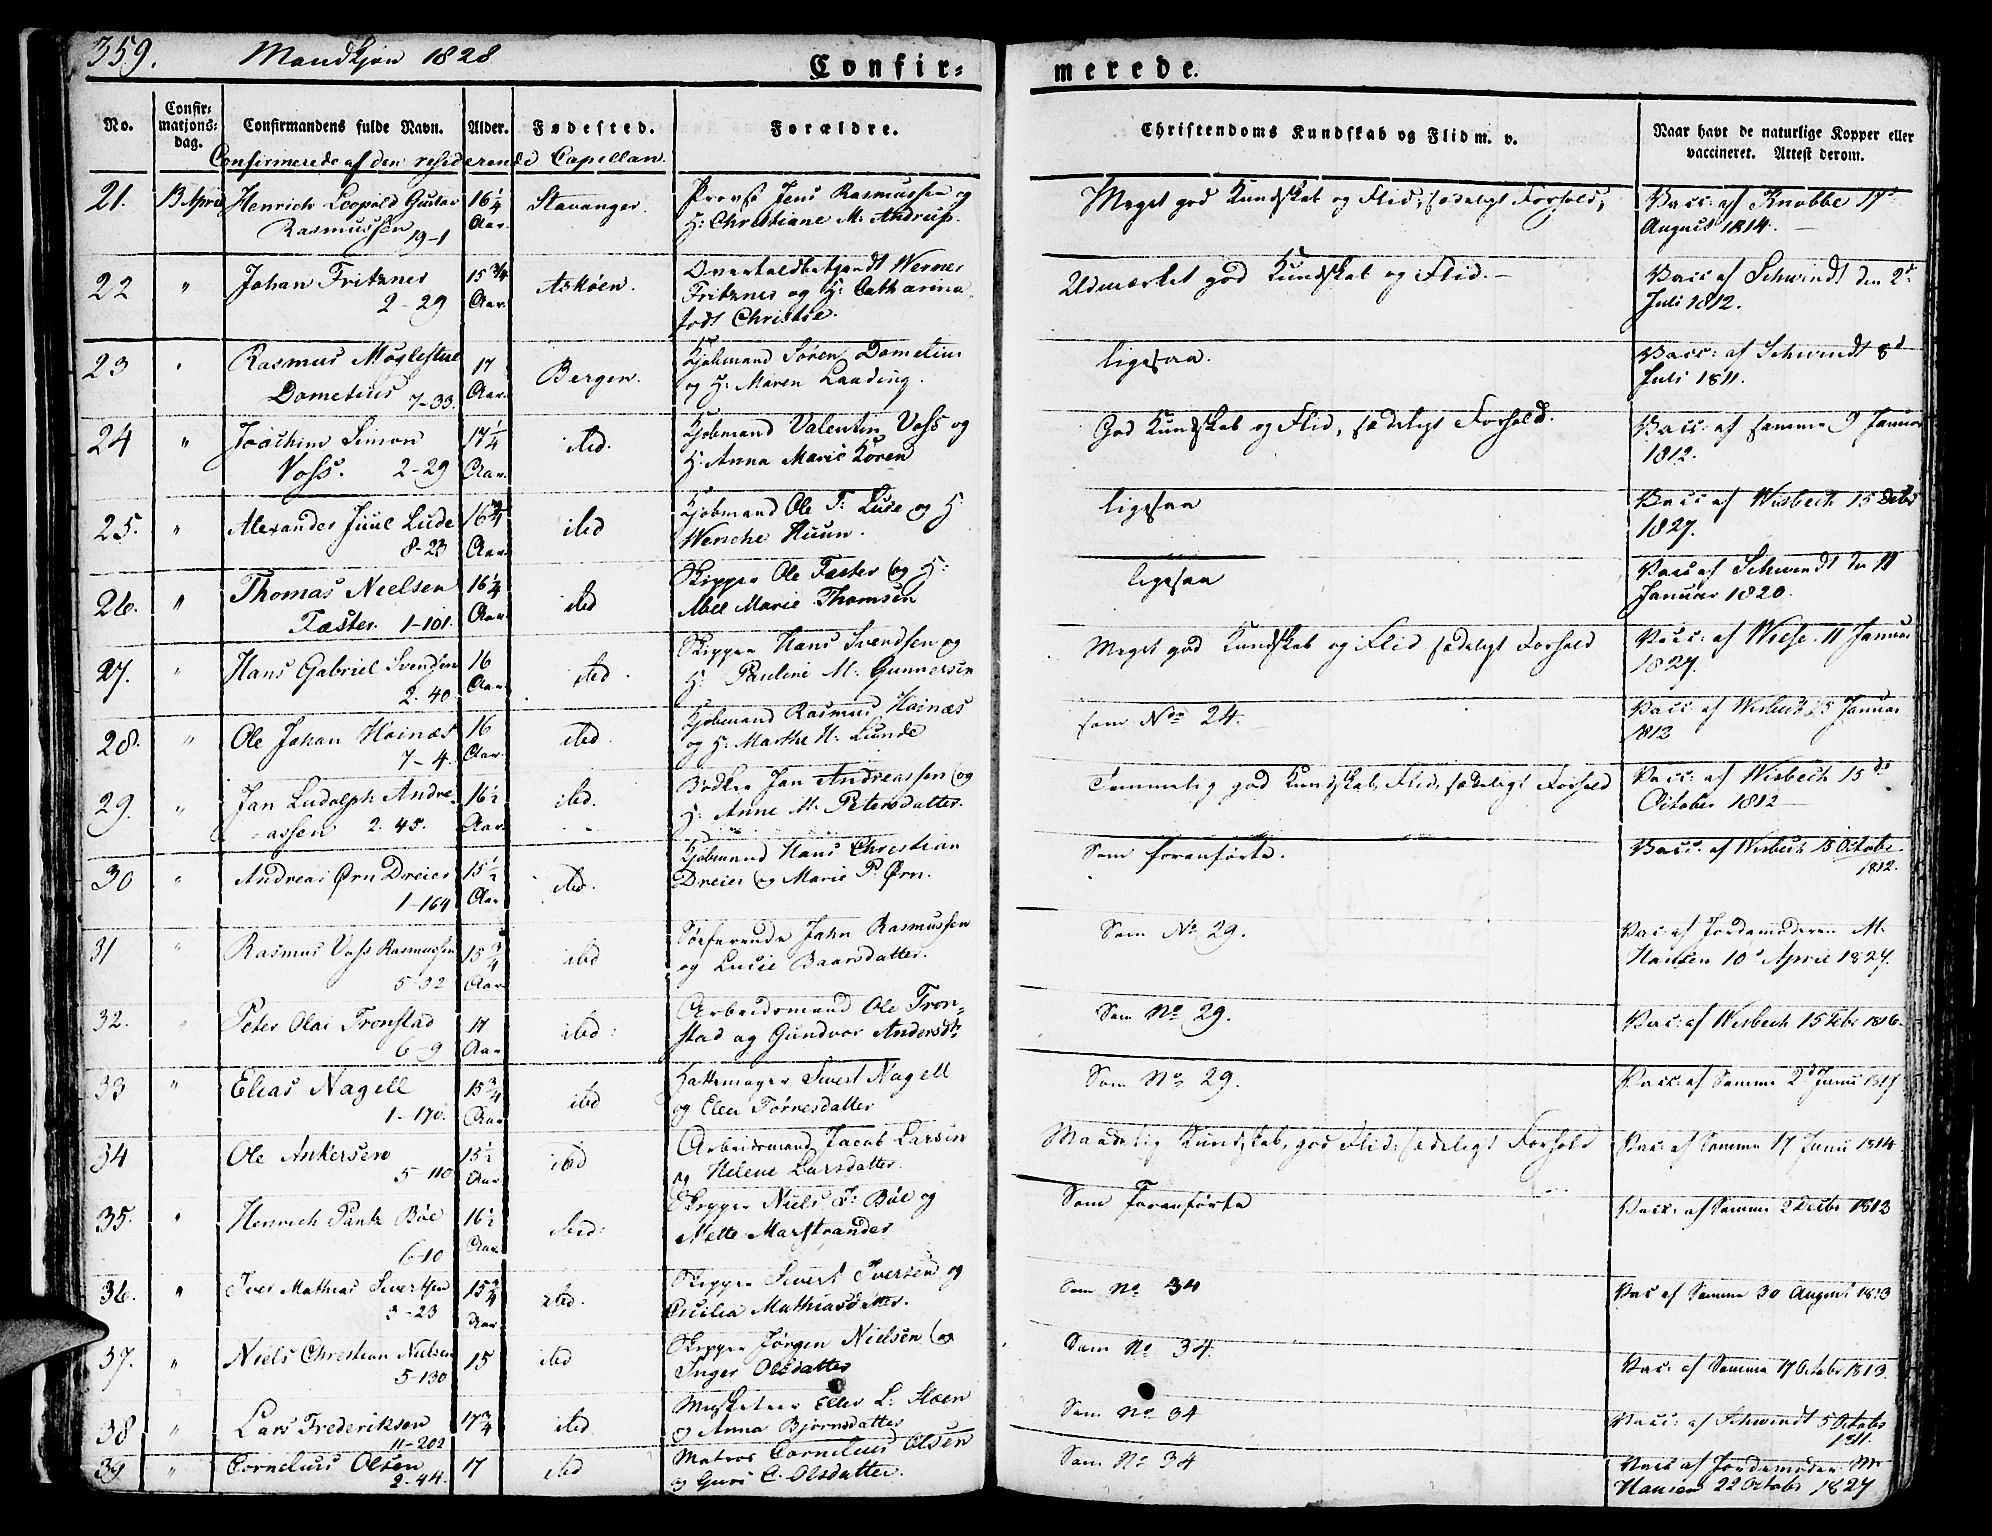 359. Mandkjøn 1828
Confir-
merede.
No.
Confir-
mations-
dag.
Confirmandens fulde Navn.
Alder.
Fødested.
Forældre.
Christendoms Kundskab og Flid m. v.
Naar havt de naturlige Kopper eller
vaccineret. Attest derom.
Confirmerede af den residerende Capellan.
21. 13 April Henrich Leopold Gustav 16 1/4 Stavanger. Provst Jens Rasmussen og Meget god Kundskab og Flid, sædeligt Forhold, Vacc: af Knobbe 17d
Rasmussen 19-1 Aar H: Christiane M. Andrup. August 1814.
22 " Johan Fritzner 15 3/4 Askøen. Werner Udmærket god Kundskab og Flid. Vacc af Schwindt den 2d
2-29 Aar Fritzner og H: Catharina Juli 1812.
født Christie.
23 " Rasmus Møglestue 17 Bergen. Kjøbmand Søren Dometius ligesaa. Vacc: af Schwindt 8d
Dometius 7-33. Aar. og H: Maren Laading. Juli 1811.
24 " Joachim Simon 17 1/4 ibid. Kjøbmand Valentin Voss og God Kundskab og Flid, sædeligt Forhold. Vacc: af samme 9 Januar
Voss. 2-29 Aar. H: Anna Marie Koren 1812.
25. " Alexander Juul Lude 16 3/4 ibid Kjøbmand Ole T: Lude og H: ligesaa Vacc af Wisbech 15
8-23 Aar Wenche Huun. 1827.
26. " Thomas Nielsen 16 1/4 ibid Skipper Ole Faster og H: ligesaa Vacc af Schwindt den 11
Fæster. 1-101. Aar. Abel Marie Thomsen Januar 1820.
27. " Hans Gabriel Svendsen 16 ibid. Skipper Hans Svendsen og Meget god Kundskab og Flid sædeligt Forhold Vacc: af Wiese 11 Januar
2-40 Aar. H: Pauline M. Gunnersen 1827.
28. " Ole Johan Hoinæs 16 ibid. Kjøbmand Rasmus Hoinæs som No 24. Vacc: af Wisbech 25 Januar
7-4. Aar. og H: Marthe H. Lunde 1813
29. " Jan Ludolph Andre- 16 1/2 ibid. Bødker Jan Andreassen og Temmelig god Kundskab, Flid, sædeligt Forhold Vacc: af Wisbech 15de
-assen 2-45. Aar. H: Anne M. Petersdatter. October 1812
30 " Andreas Ørn Dreier 15 1/2 ibid. Kjøbmand Hans Christian Som foranførte. Vacc: af Wisbech 15 Octobr
1-164 Aar Dreier og Marie P. Ørn. 1812.
31 " Rasmus Voss Rasmussen 15 3/4 ibid Søefarende John Rasmussen Som No 29. Vac: af Jordemoderen M.
5-32 Aar og Lucie Baarsdatter. Hansen 10d April 1827.
32. " Peter Olai Tronstad 17 ibid: Arbeidsmand Ole Tron- Som No 29. Vac: af Wisbech 15 Febr 1816.
6-9 Aar stad og Gundvor Andersdtr
33 " Elias Nagell 15 3/4 ibid Hattemager Sivert Nagell Som No 29. Vacc: af Samme 2 Junii 1817
1-170. Aar. og Elen Torresdatter
34 " Ole Ankersen 15 1/2 ibid Arbeidsmand Jacob Larsen Maadelig Kundskab, god Flid, sædeligt Forhold Vac: af Samme 17 Junii 1814
5-110 Aar. og Helene Larsdatter.
35. " Henrich Pantz Bøe 16 1/2 ibid: Skipper Niels J: Bøe og Som foranførte Vacc: af Samme 2 Decbr 1813
6-10 Aar. Mette Marstrander
36. " Iver Mathias Sivertsen 15 3/4 ibid. Skipper Sivert Iversen og Som No 34 Vac af Samme 30 August 1813
3-23 Aar. Cecilia Mathiasdatter.
37. " Niels Christian Nielsen 15 ibid Skipper Jørgen Nielsen og Som No 34. Vac: af Samme 17 Octobr 1813.
5-130 Inger Olsdatter
38 " Lars Frederiksen 17 3/4 ibid. Musketeer Eller L. Steen Som No 34 Vacc: af Schwindt 5 Octobr
11-202 og Anna Bjørnsdatter 1811.
39 " Cornelius Olsen 17 ibid Matros Cornelius Olsen Som No 34 Vacc af Jordemoder M.
2-44. og Guri C. Olsdatter. Hansen 22 Octobr 1827